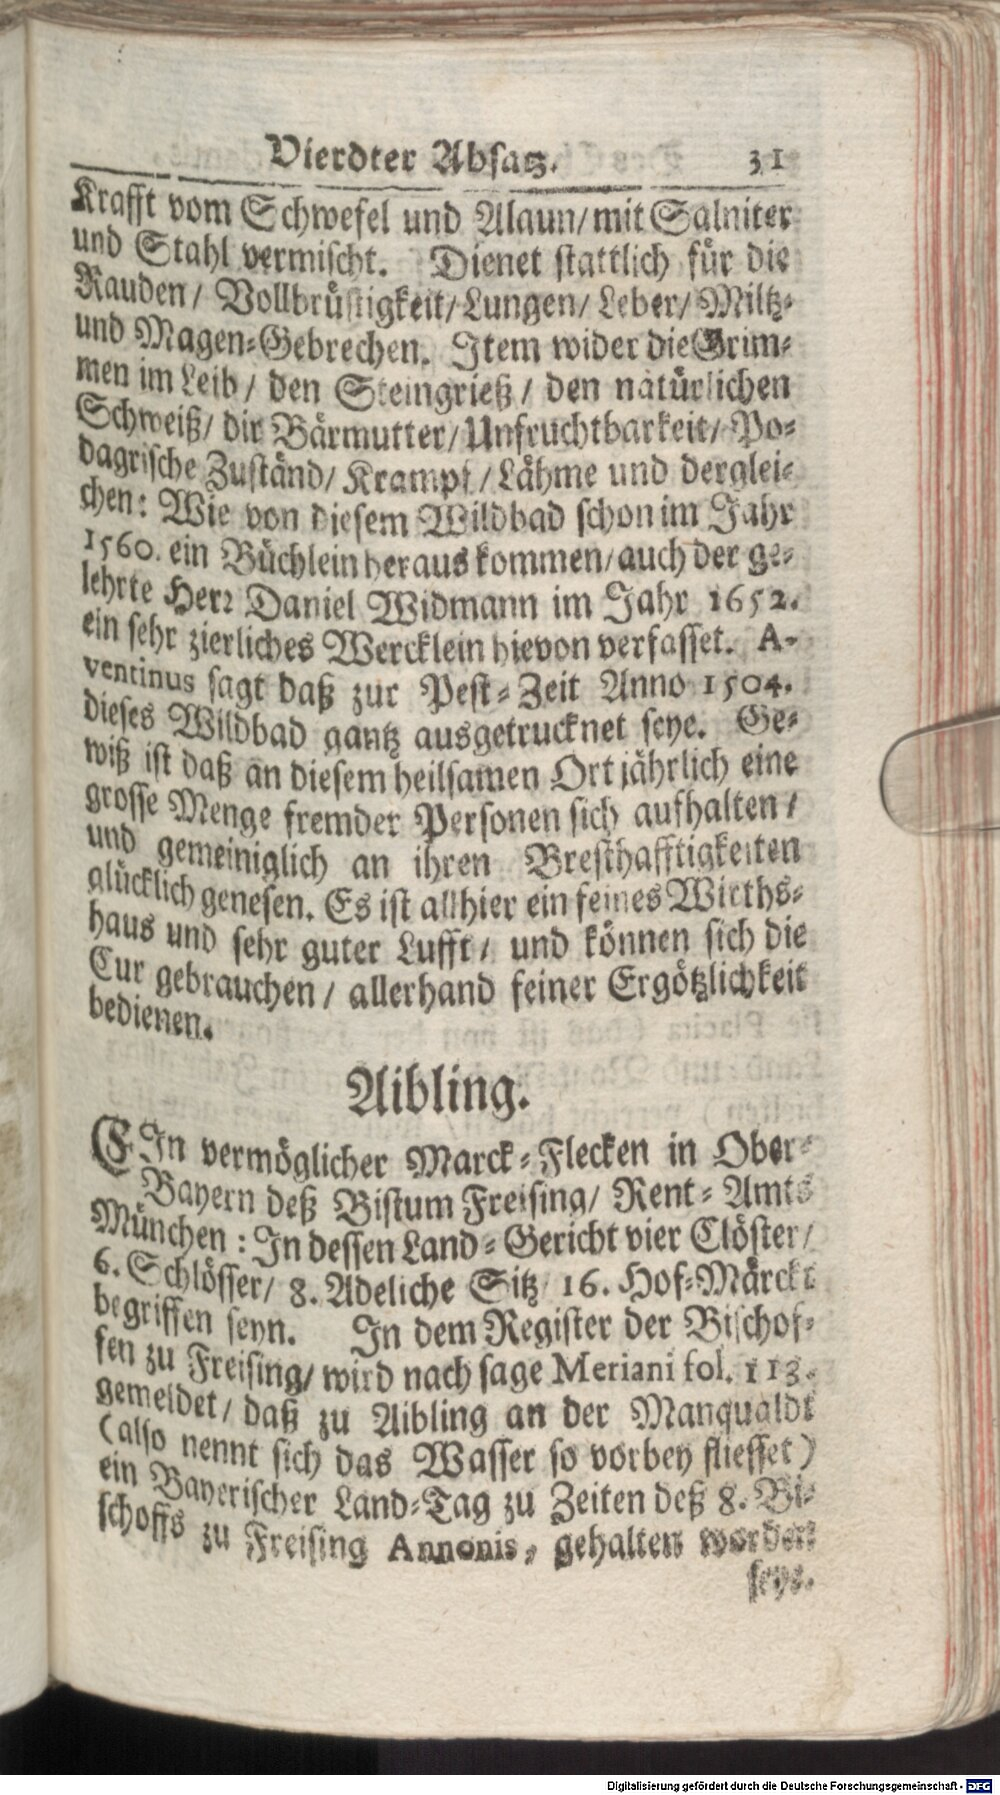 Vierdter Absatz. 31
Krafft vom Schwefel und Alaun/ mit Salniter
und Stahl vermischt. Dienet stattlich für die
Rauden/ Vollbrüstigkeit/ Lungen/ Leber/ Miltz-
und Magen-Gebrechen. Item wider die Grim-
men im Leib/ den Steingrieß/ den natürlichen
Schweiß/ dir Bärmutter/ Unfruchtbarkeit/ Po-
dagrische Zuständ/ Krampf/ Lähme und derglei-
chen: Wie von diesem Wildbad schon im Jahr
1560. ein Büchlein heraus kommen/ auch der ge-
lehrte Herr Daniel Widmann im Jahr 1652.
ein sehr zierliches Wercklein hievon verfasset. A-
ventinus sagt daß zur Pest-Zeit Anno 1504.
dieses Wildbad gantz ausgetrucknet seye. Ge-
wiß ist daß an diesem heilsamen Ort jährlich eine
grosse Menge fremder Personen sich aufhalten/
und gemeiniglich an ihren Bresthafftigkeiten
glücklich genesen. Es ist allhier ein feines Wirths-
haus und sehr guter Lufft/ und können sich die
Cur gebrauchen/ allerhand feiner Ergötzlichkeit
bedienen.
Aibling.
EIn vermöglicher Marck-Flecken in Ober-
Bayern deß Bistum Freising/ Rent-Amts
München: In dessen Land-Gericht vier Clöster/
6. Schlösser/ 8. Adeliche Sitz/ 16. Hof-Märckt
begriffen seyn. In dem Register der Bischof-
fen zu Freising/ wird nach sage Meriani fol. 113.
gemeldet/ daß zu Aibling an der Manqualdt
(also nennt sich das Wasser so vorbey fliesset)
ein Bayerischer Land-Tag zu Zeiten deß 8. Bi-
schoffs zu Freising Annonis, gehalten worden
seye.
Digitalisierung gefördert durch die Deutsche Forschungsgemeinschaft - DFG